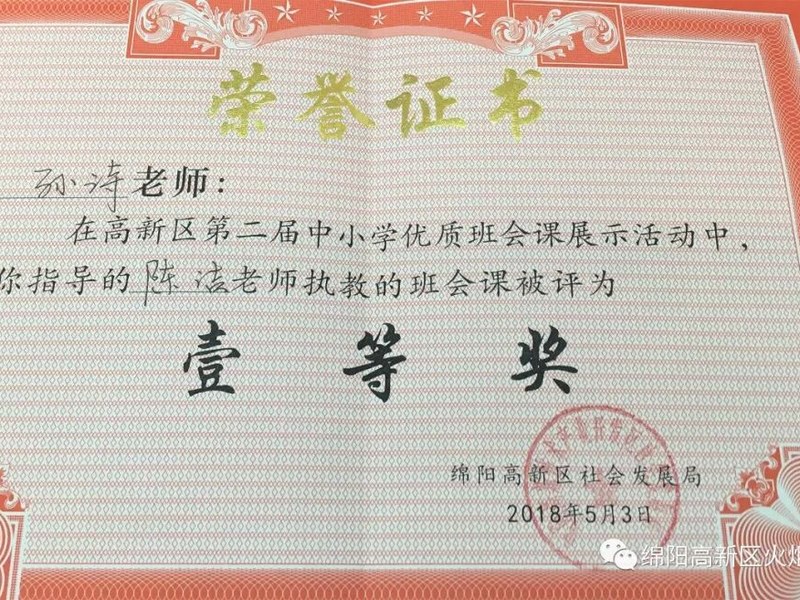 荣誉证书
孙涛老师：
在高新区第二届中小学优质班会课展示活动中，
你指导的陈洁老师执教的班会课被评为
壹等奖
绵阳高新区社会发展局
2018年5月3日
绵阳高新区火炬